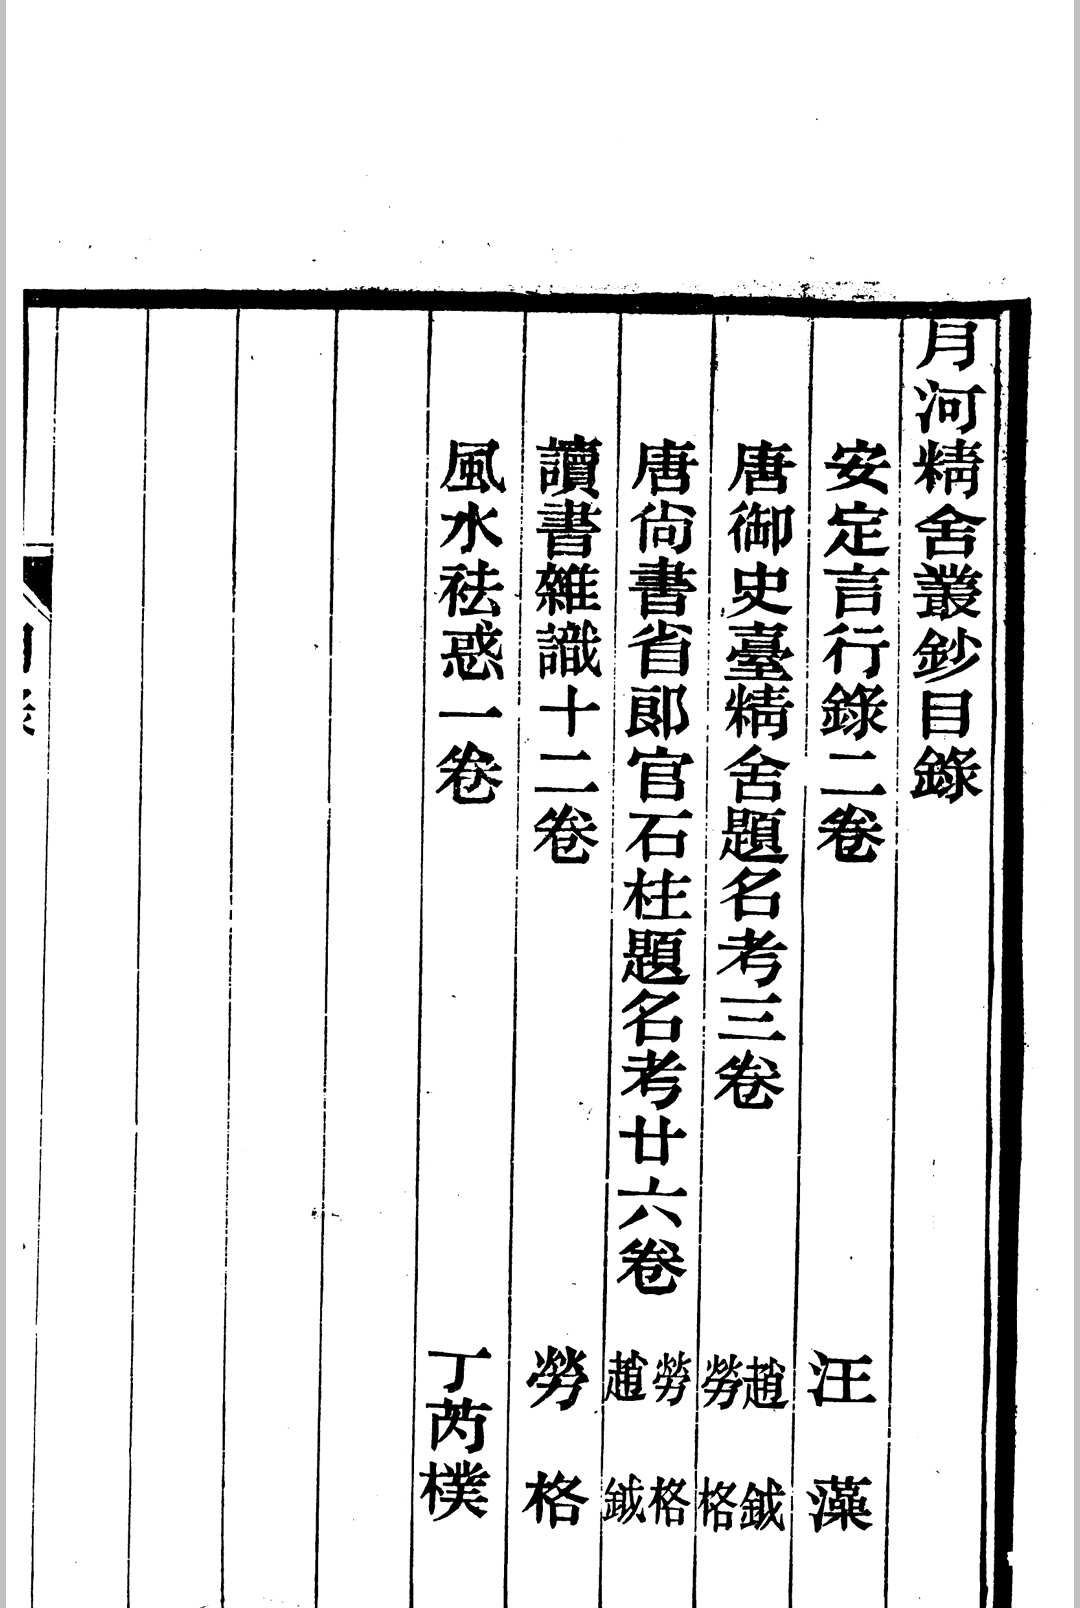 月河精舍叢鈔目錄
安定言行錄二卷 汪藻
唐御史臺精舍題名考三卷 趙鉞 勞格
唐尙書省郎官石柱題名考廿六卷 勞格 趙鉞
讀書雜識十二卷 勞格
風水祛惑一卷 丁芮樸